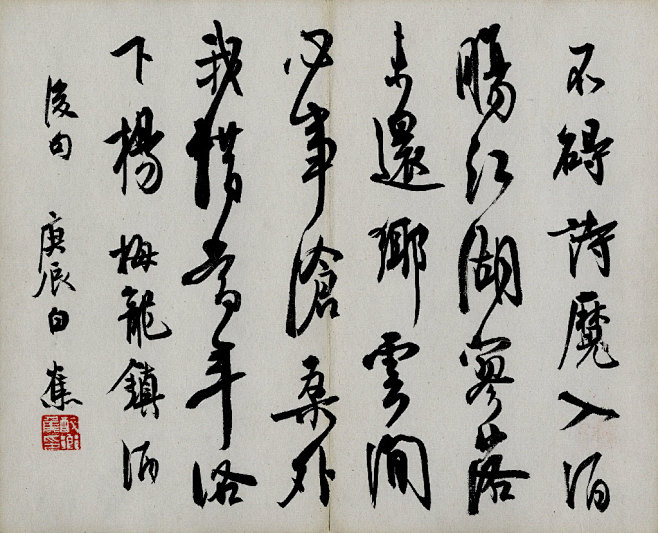 不碍詩魔入酒
腸江湖寥落
未還鄉雲間
心事滄桑外
我惜當年洛
下楊梅龍鎮酒
後句 庚辰白蕉